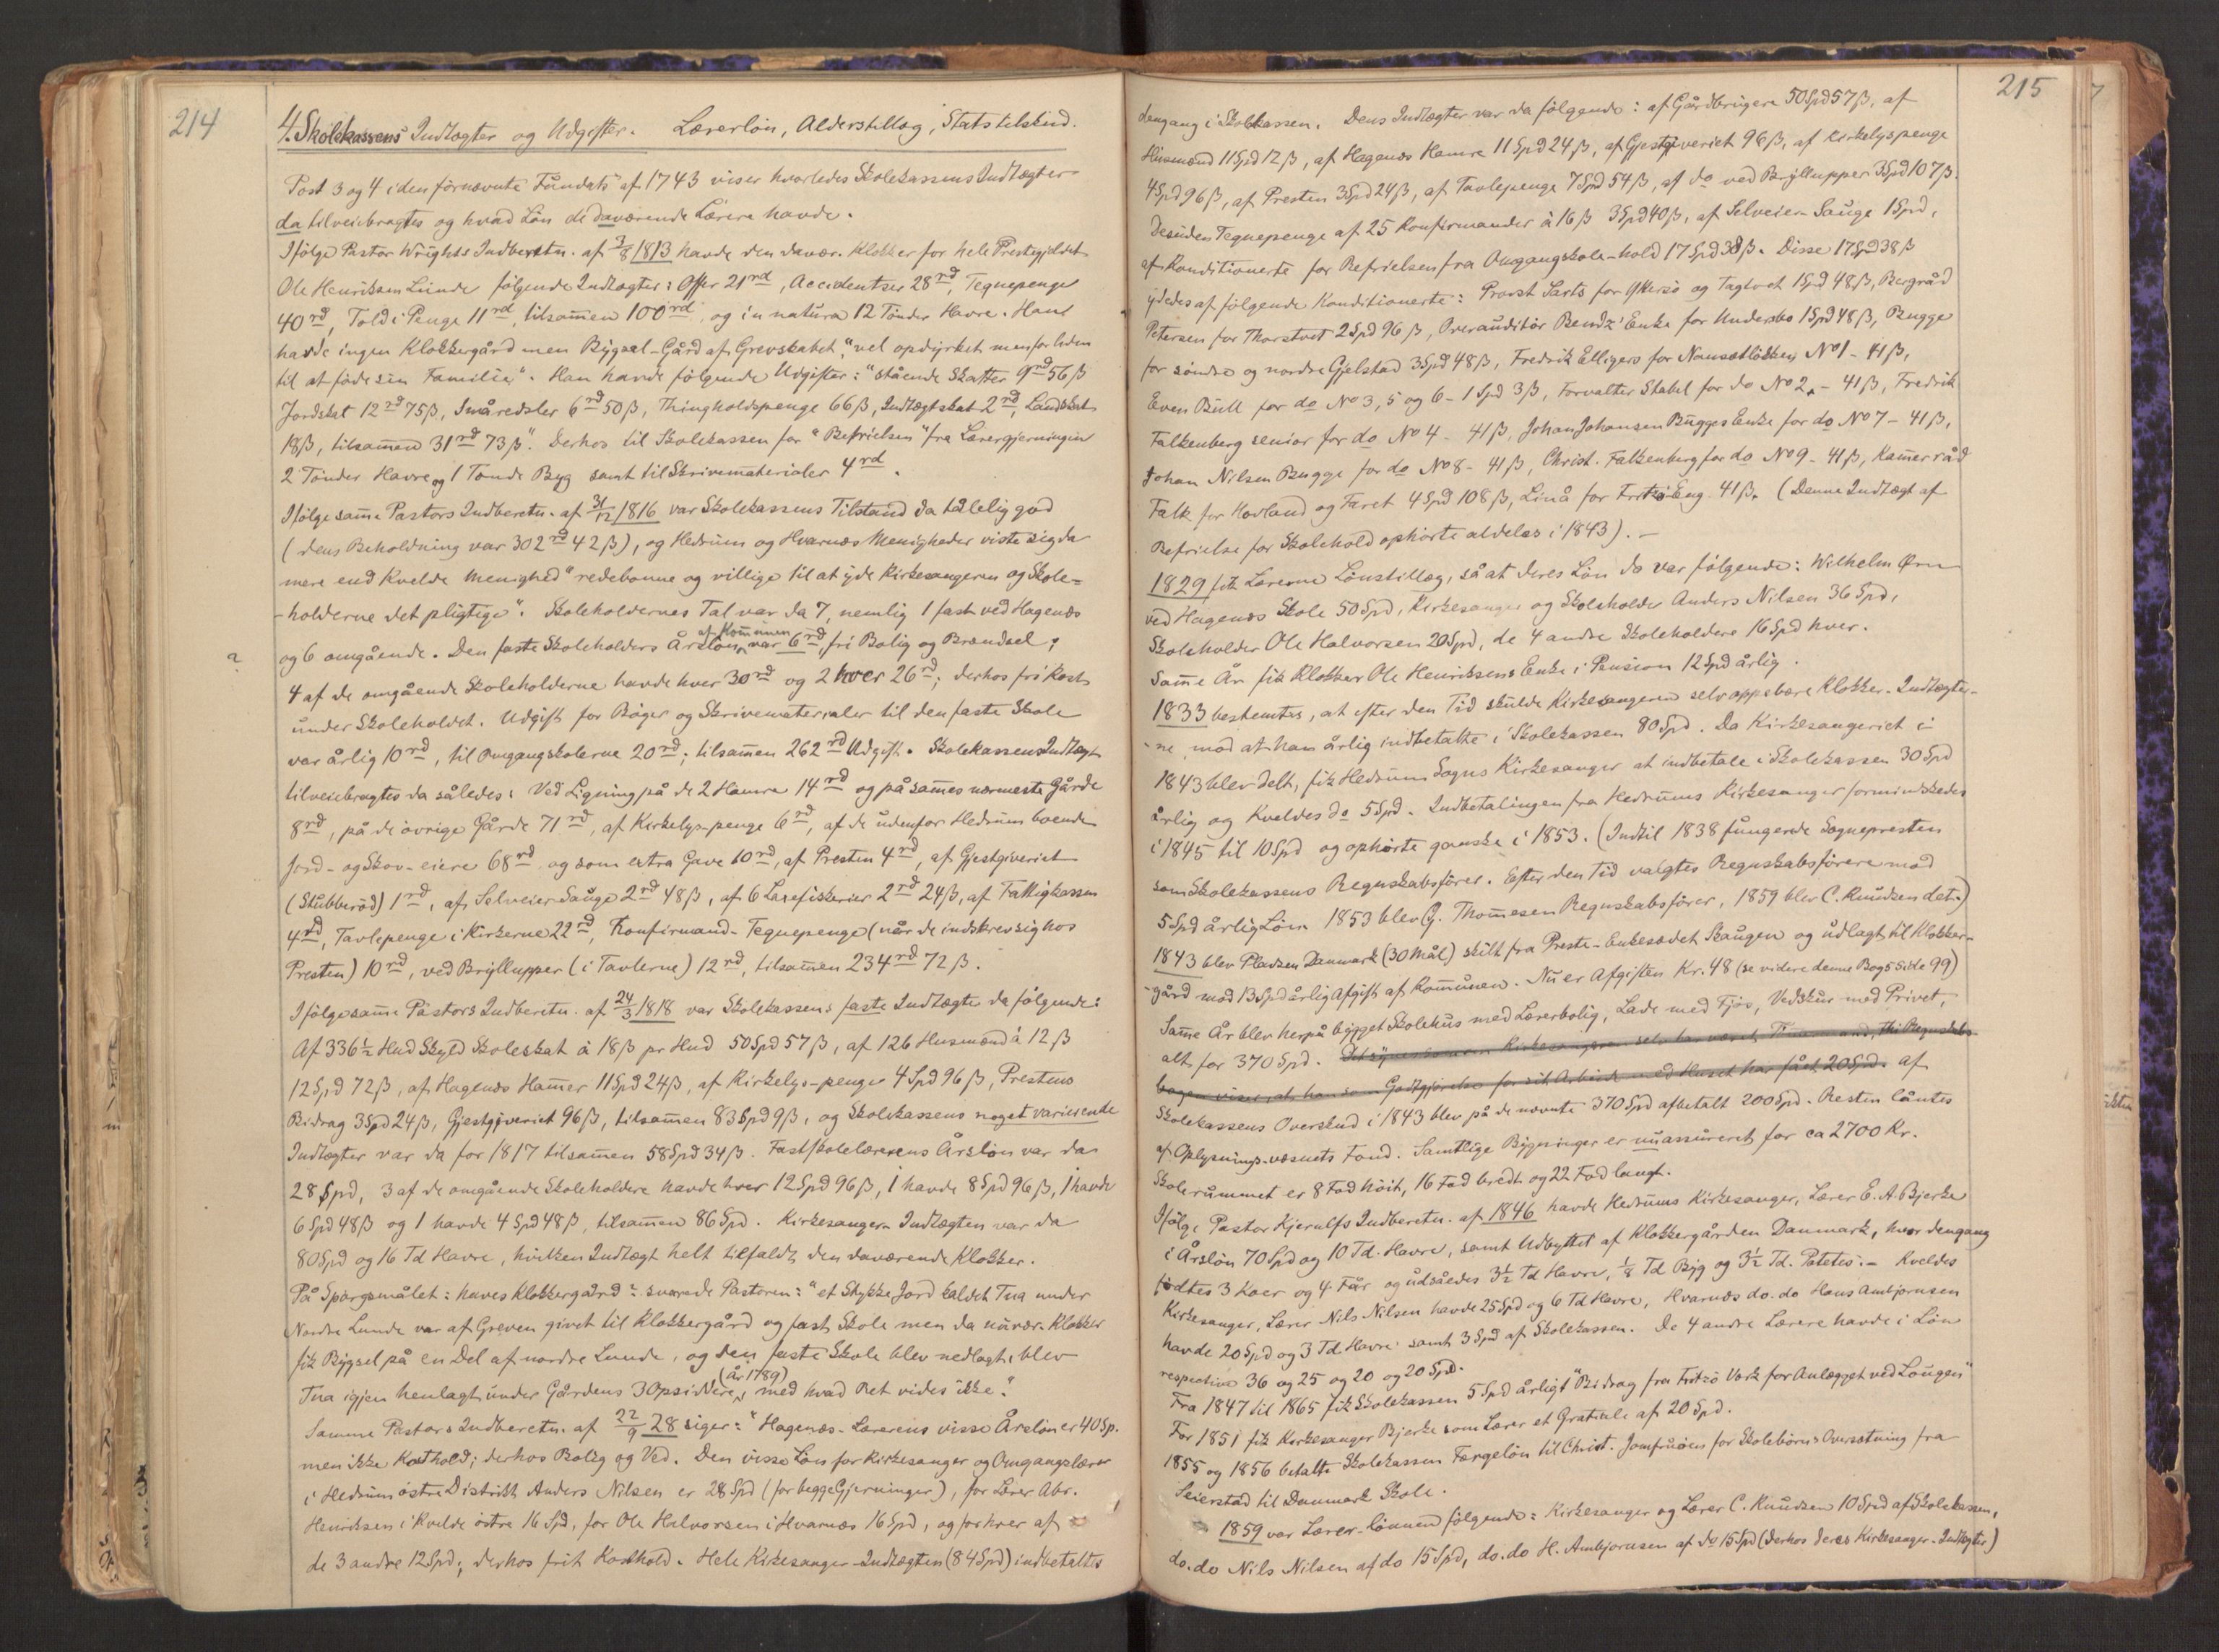 214
4. Skolekassens Indtægter og Udgifter. Lærerløn, Alderstillæg, Statstilskud.
Post 3 og 4 i den förnævnte "Fundats" af 1743 viser hvorledes Skolekassens Indtægter
da tilveiebragtes og hvad Løn de daværende Lærere havde.
Ifölge Pastor Wrights Indberetn. af 3/8 1813 havde den davær. Klokker for hele Prestegjeldet
Ole Henriksen Lunde följende Indtægter: Offer 21 rd, Accidentser 28 rd, Tegnepenge
40 rd, Told i Penge 11 rd, tilsammen 100 rd, og in natura 12 Tönder Havre. Han
havde ingen Klokkergård men Bygsel-Gård af Grevskabet, "vel opdyrket men for liden
til at föde sin Familie". Han havde följende Udgifter: "stående Skatter 9 rd 56 ß
Jordskat 12 rd 75 ß, Småredsler 6 rd 50 ß, Thingholdspenge 66 ß, Indtægtskat 2 rd, Landskat
18 ß, tilsammen 31 rd 73 ß". Derhos til Skolekassen for "Befrielsen" fra Lærergjerningen
2 Tönder Havre og 1 Tönde Byg samt til Skrivematerialer 4 rd.
Ifölge samme Pastors Indberetn. af 31/12 1816 var Skolekassens Tilstand da tålelig god
(dens Beholdning var 302 rd 42 ß), og Hedrum og Hvarnæs Menigheder viste sig da
mere end Kvelde Menighed "redebonne og villige til at yde Kirkesangeren og Skole=
-holderne det pligtige". Skoleholdernes Tal var da 7, nemlig 1 fast ved Hagenæs
og 6 omgående. Den faste Skoleholders Årsløn af Kommunen var 6 rd, fri Bolig og Brændsel;
4 af de omgående Skoleholderne havde hver 30 rd og 2 hver 26 rd; derhos fri Kost
under Skoleholdet. Udgift for Böger og Skrivematerialer til den faste Skole
var årlig 10 rd, til Omgangskolerne 20 rd; tilsammen 262 rd Udgift. Skolekassens Indtægt
tilveiebragtes da således: Ved Ligning på de 2 Hamre 14 rd og på sammes nærmeste Gårde
8 rd, på de övrige Gårde 71 rd, af Kirkelys-penge 6 rd, af de udenfor Hedrum boende
Jord- og Skov-eiere 68 rd og som extra Gave 10 rd, af Presten 4 rd, af Gjestgiveriet
(Stubberöd) 1 rd, af Selveier-Sauge 2 rd 48 ß, af 6 Laxefiskerier 2 rd 24 ß, af Fattigkassen
4 rd, Tavlepenge i Kirkerne 22 rd, Konfirmand-Tegnepenge (når de indskrev sig hos
Presten) 10 rd, ved Bryllupper (i Tavlerne) 12 rd, tilsammen 234 rd 72 ß.
Ifölge samme Pastors Indberetn. af 24/3 1818 var Skolekassens faste Indtægter da fölgende:
Af 336 1/2 Hud Skyld Skoleskat à 18 ß pr Hud 50 Spd 57 ß, af 126 Husmænd à 12 ß
12 Spd 72 ß, af Hagenæs Hammer 11 Spd 24 ß, af Kirkelys-penge 4 Spd 96 ß, Prestens
Bidrag 3 Spd 24 ß, Gjestgiveriet 96 ß, tilsammen 83 Spd 9 ß, og Skolekassens noget varierende
Indtægter var da for 1817 tilsammen 58 Spd 34 ß. Fastskolelærerens Årsløn var da
28 Spd, 3 af de omgående Skoleholdere havde hver 12 Spd 96 ß, 1 havde 8 Spd 96 ß, 1 havde
6 Spd 48 ß og 1 havde 4 Spd 48 ß, tilsammen 86 Spd. Kirkesanger-Indtægten var da
80 Spd og 16 Td Havre, hvilken Indtægt helt tilfaldt den daværende Klokker.
På Spørgsmålet: haves Klokkergård? svarede Pastoren: "et Stykke Jord kaldet Tua under
Nordre Lunde var af Greven givet til Klokkergård og fast Skole men da nuvær. Klokker
fik Bygsel på en Del af nordre Lunde, og den faste Skole blev nedlagt, blev
Tua igjen henlagt under Gårdens 3 Opsiddere, (år 1789) med hvad Ret vides ikke".
Samme Pastors Indberetn. af 22/9 28 siger: "Hagenæs-Lærerens visse Årsløn er 40 Sp.
men ikke Kosthold; derhos Bolig og Ved. Den visse Løn for Kirkesanger og Omgangslærer
i Hedrum östre Distrikt Anders Nilsen er 28 Spd (for begge Gjerninger), for Lærer Abr.
Henriksen i Kvelde östre 16 Spd, for Ole Halvorsen i Hvarnæs 16 Spd, og for hver af
de 3 andre 12 Spd; derhos frit Kosthold. Hele Kirkesanger-Indtægten (84 Spd) indbetaltes
215
dengang i Skolekassen. Dens Indtægter var da fölgende: af Gårdbrugere 50 Spd 57 ß, af
Husmænd 11 Spd 12 ß, af Hagenæs Hamre 11 Spd 24 ß, af Gjestgiveriet 96 ß, af Kirkelyspenge
4 Spd 96 ß, af Presten 3 Spd 24 ß, af Tavlepenge 7 Spd 54 ß, af do ved Bryllupper 3 Spd 107 ß.
Desuden Tegnepenge af 25 Konfirmander à 16 ß 3 Spd 40 ß, af Selveier-Sauge 1 Spd,
af Konditionerte for Befrielsen fra Omgangskole-hold 17 Spd 38 ß. Disse 17 Spd 38 ß
ydedes af følgende Konditionerte: Provst Sarts for Ökersö og Tagtvet 1 Spd 48 ß, Bergråd
Petersen for Thorstvet 2 Spd 96 ß, Overauditör Bendz' Enke for Undersbo 1 Spd 48 ß, Bugge
for söndre og nordre Gjelstad 3 Spd 48 ß, Fredrik Elligers for Nansetlökken No 1 - 41 ß,
Even Bull for do No 3, 5 og 6 - 1 Spd 3 ß, Forvalter Stabel for do No 2. - 41 ß, Fredrik
Falkenberg senior for do No 4 - 41 ß, Johan Johansen Bugges Enke for do No 7 - 41 ß,
Johan Nilsen Bugge for do No 8 - 41 ß, Christ. Falkenberg for do No 9 - 41 ß, Kammerråd
Falk for Hovland og Faret 4 Spd 108 ß, Linå for Fritzö Eng 41 ß. (Denne Indtægt af
Befrielse for Skolehold ophörte aldeles i 1843). -
1829 fik Lærerne Lönstillæg, så at deres Løn da var følgende: Wilhelm Ørn
ved Hagenæs Skole 50 Spd, Kirkesanger og Skoleholder Anders Nilsen 36 Spd,
Skoleholder Ole Halvorsen 20 Spd, de 4 andre Skoleholdere 16 Spd hver.
Samme År fik Klokker Ole Henriksens Enke i Pension 12 Spd årlig.
1833 bestemtes, at efter den Tid skulde Kirkesangeren selv oppebære Klokker-Indtægter-
-ne mod at han årlig indbetalte i Skolekassen 80 Spd. Da Kirkesangeriet i
1843 blev delt, fik Hedrum Sogns Kirkesanger at indbetale i Skolekassen 30 Spd
årlig og Kveldes do 5 Spd. Indbetalingen fra Hedrums Kirkesanger formindskedes
i 1845 til 10 Spd og ophörte ganske i 1853. (Indtil 1838 fungerede Sognepresten
som Skolekassens Regnskabsfører. Efter den Tid valgtes Regnskabsförere mod
5 Spd årlig Løn. 1853 blev G. Thommesen Regnskabsförer, 1859 blev C. Knudsen det.)
1843 blev Pladsen Danmark (30 Mål) skilt fra Preste-Enkesædet Skaugen og udlagt til Klokker-
-gård mod 13 Spd årlig Afgift af Kommunen. Nu er Afgiften Kr. 48 (se videre denne Bogs Side 99)
Samme År blev herpå bygget Skolehus med Lærerbolig, Lade med Fjös, Vedskur med Privet,
alt for 370 Spd. Kirkesangeren selv har været Tømmermand, thi Regnskabs-
bogen viser, at han som Godtgjörelse for sit Arbeide med Huset har fået 20 Spd. af
Skolekassens Overskud i 1843 blev på de nævnte 370 Spd afbetalt 200 Spd. Resten låntes
af Oplysnings-væsnets Fond. Samtlige Bygninger er nu assureret for ca 2700 Kr.
Skolerummet er 8 Fod höit, 16 Fod bredt og 22 Fod langt.
Ifølge Pastor Kjerulfs Indberetn. af 1846 havde Hedrums Kirkesanger, Lærer E. A. Bjerke
i Årsløn 70 Spd og 10 Td. Havre, samt Udbyttet af Klokkergården Danmark, hvor dengang
födtes 3 Koer og 4 Får og udsåedes 3 1/2 Td Havre, 1/8 Td Byg og 3 1/2 Td. Potetes. - Kveldes
Kirkesanger, Lærer Nils Nilsen havde 25 Spd og 6 Td Havre, Hvarnæs do. do Hans Ambjornsen
havde 20 Spd og 3 Td Havre samt 3 Spd af Skolekassen. De 4 andre Lærere havde i Løn
respective 36 og 25 og 20 og 20 Spd.
Fra 1847 til 1865 fik Skolekassen 5 Spd årligt "Bidrag fra Fritzö Værk for Anlægget ved Lougen"
For 1851 fik Kirkesanger Bjerke som Lærer et Gratiale af 20 Spd.
1855 og 1856 betalte Skolekassen Færgelön til Christ. Jomfruöen for Skolebörns Oversætning fra
Seierstad til Danmark Skole.
1859 var Lærer-lönnen fölgende: Kirkesanger og Lærer C. Knudsen 10 Spd af Skolekassen,
do. do Nils Nilsen af do 15 Spd, do. do H. Ambjornsen af do 15 Spd (derhos deres Kirkesanger-Indtægter)